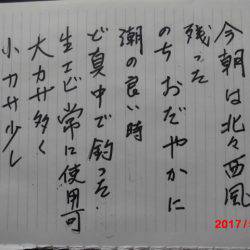 今朝は北々西風
残った
のちおだやかに
潮の良い時
ど真中で釣った
生エビ常に使用可
大カサ多く
小カサ少し
2017/